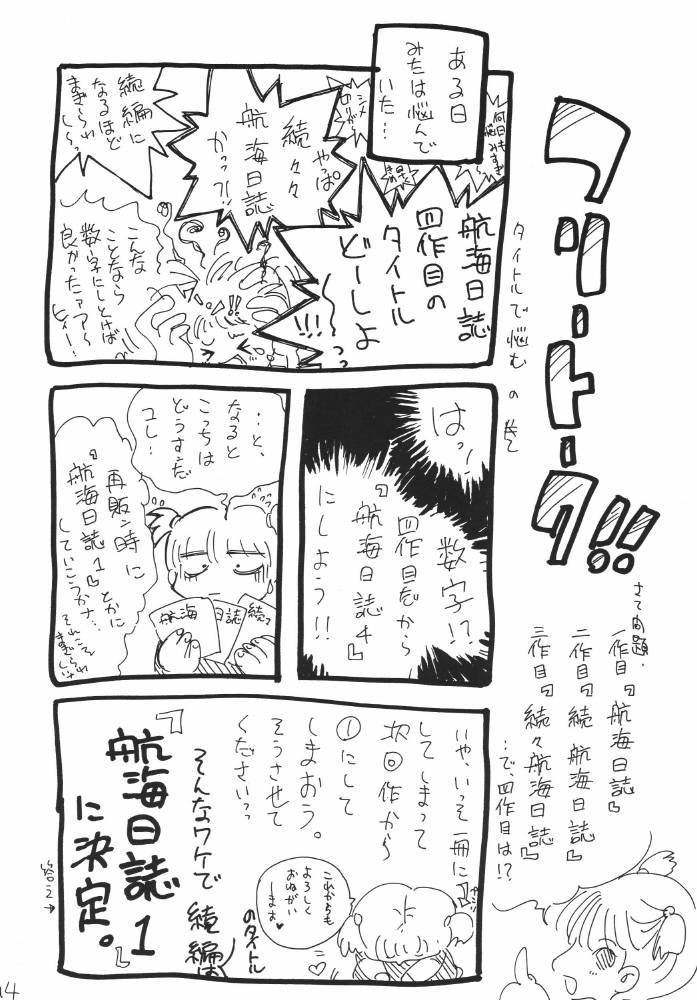 フリートーク!!
タイトルで悩む の巻
さて問題.
一作目『航海日誌』
二作目『続 航海日誌』
三作目『続々航海日誌』
…で、四作目は!?
ある日
みたは悩んで
いた…
航海日誌
四作目の
タイトル
どーしよ
〜っっ
!!!
何日も
悩みすぎ
やっぱ
続々々
航海日誌
かっ?!
続編に
なるほど
まぎらわ
し〜っ
こんな
ことなら
数字にしとけば
良かったァァ〜
ヒィー!
はっ!
数字!?
四作目だから
『航海日誌4』
にしよう!!
…と、
なると
こっちは
どうすんだ
ユし…
航海
日誌
続々
再販ン時に
『航海日誌1』とかに
していこうかナ…
それこそ
まぎらわしいよ
いや、いっそ一冊に
してしまって
次回作から
①にして
しまおう。
そうさせて
くださいっっ
これからも
よろしく
おねがい
しまーす♥
そんなワケで 続編は
のタイトル
『航海日誌1』
に決定。
答え→
14